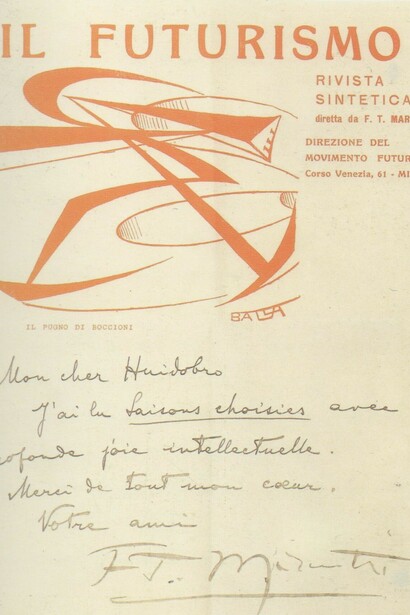 IL FUTURISMO
RIVISTA
SINTETICA
diretta da F. T. MAR
DIREZIONE DEL
MOVIMENTO FUTUR
Corso Venezia, 61 - MI
BALLA
IL PUGNO DI BOCCIONI
Mon cher Huidobro
J'ai lu Saisons choisies avec
rofonde joie intellectuelle.
Merci de tout mon cœur.
Votre ami
F. T. Marinetti